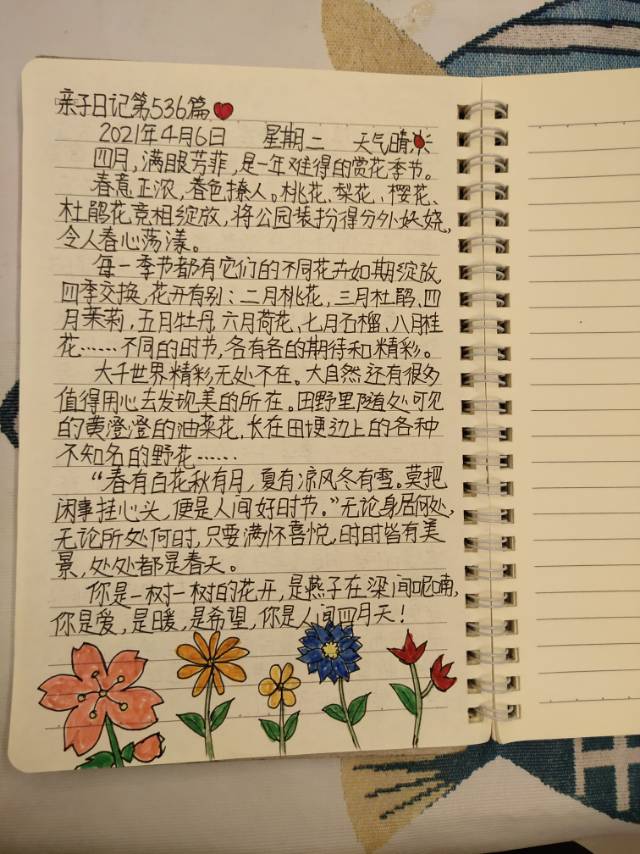 亲子日记第536篇
2021年4月6日 星期二 天气晴
四月,满眼芳菲,是一年难得的赏花季节。
春意正浓,春色撩人。桃花、梨花、樱花、
杜鹃花竞相绽放,将公园装扮得分外妖娆,
令人春心荡漾。
每一季节都有它们的不同花卉如期绽放,
四季交换,花开有别:二月桃花,三月杜鹃、四
月茉莉,五月牡丹,六月荷花、七月石榴、八月桂
花……不同的时节,各有各的期待和精彩。
大千世界精彩无处不在。大自然还有很多
值得用心去发现美的所在。田野里随处可见
的黄澄澄的油菜花,长在田埂边上的各种
不知名的野花……
“春有百花秋有月,夏有凉风冬有雪。莫把
闲事挂心头,便是人间好时节。”无论身居何处,
无论所处何时,只要满怀喜悦,时时皆有美
景,处处都是春天。
你是一树一树的花开,是燕子在梁间呢喃,
你是爱,是暖,是希望,你是人间四月天!